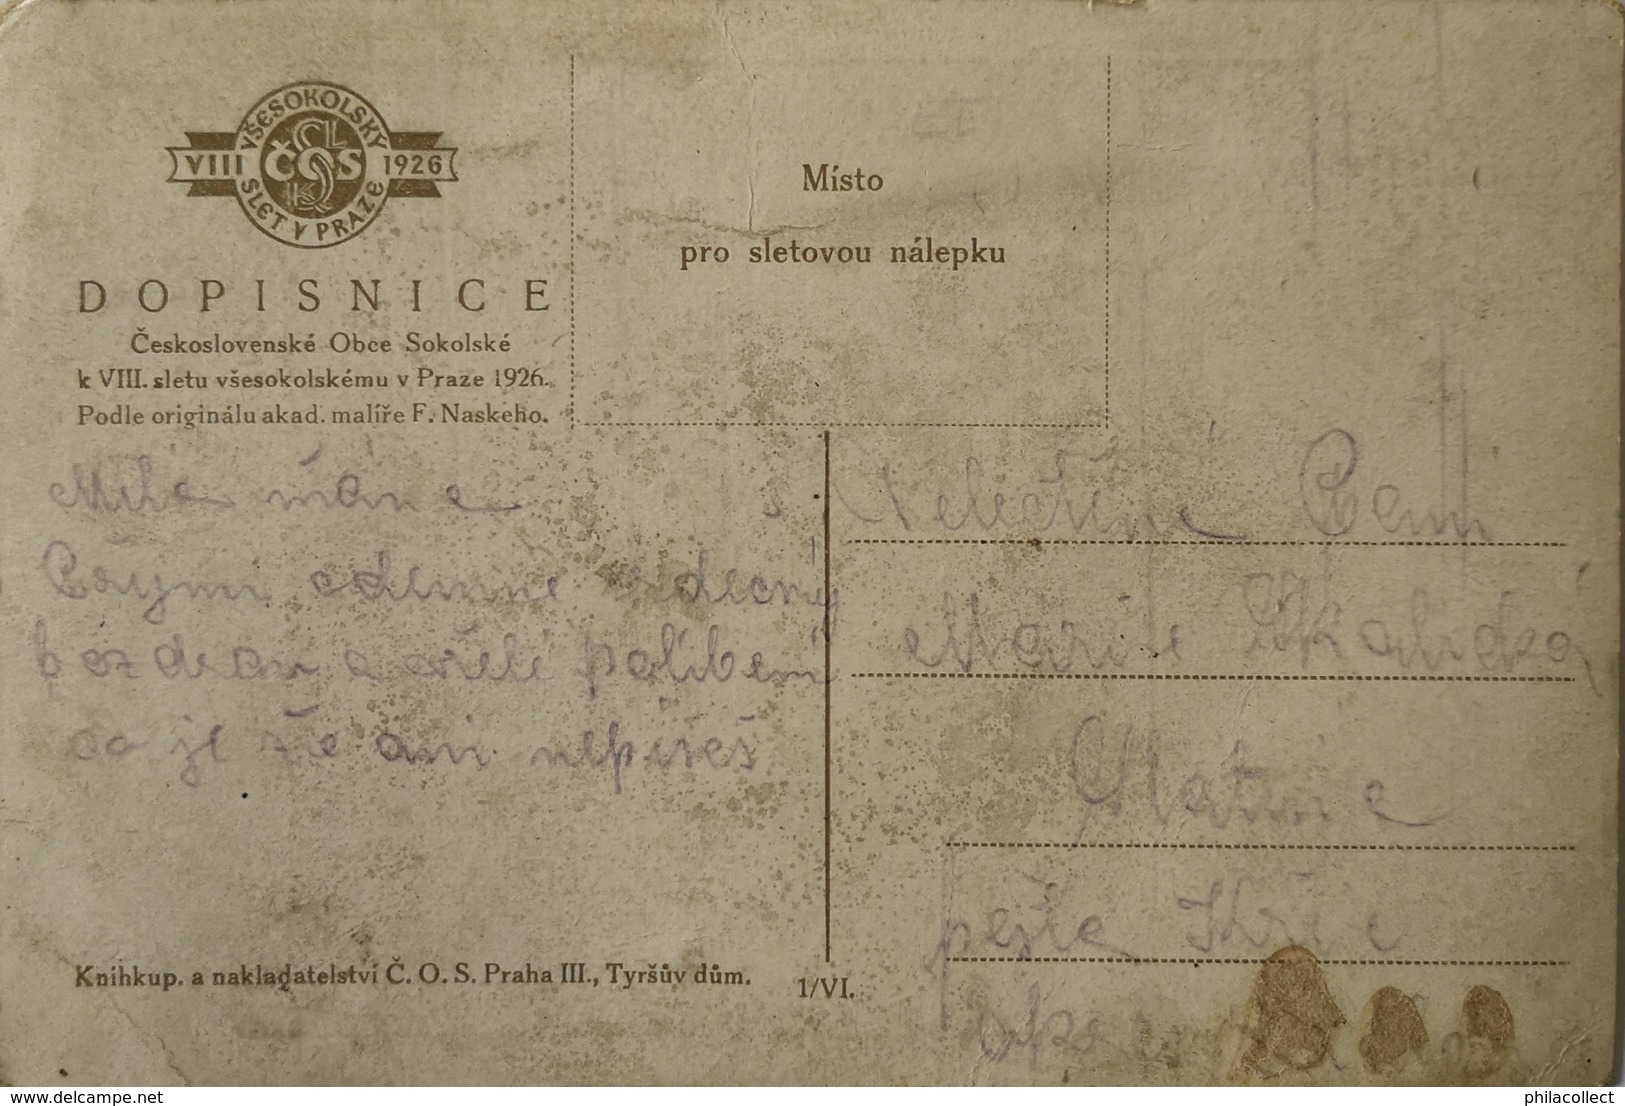 VŠESOKOLSKÝ
VIII ČOS 1926
SLET V PRAZE
DOPISNICE
Československé Obce Sokolské
k VIII. sletu všesokolskému v Praze 1926.
Podle originálu akad. malíře F. Naskeho.
Místo
pro sletovou nálepku
Milá máne
odemne srdečný
pozdraví a políbení
co je že ani nepíšeš
Velectěná Paní
Marie
Slatina
pošta
Knihkup. a nakladatelství Č. O. S. Praha III., Tyršův dům.
1/VI.
delcampe.net
philacollect